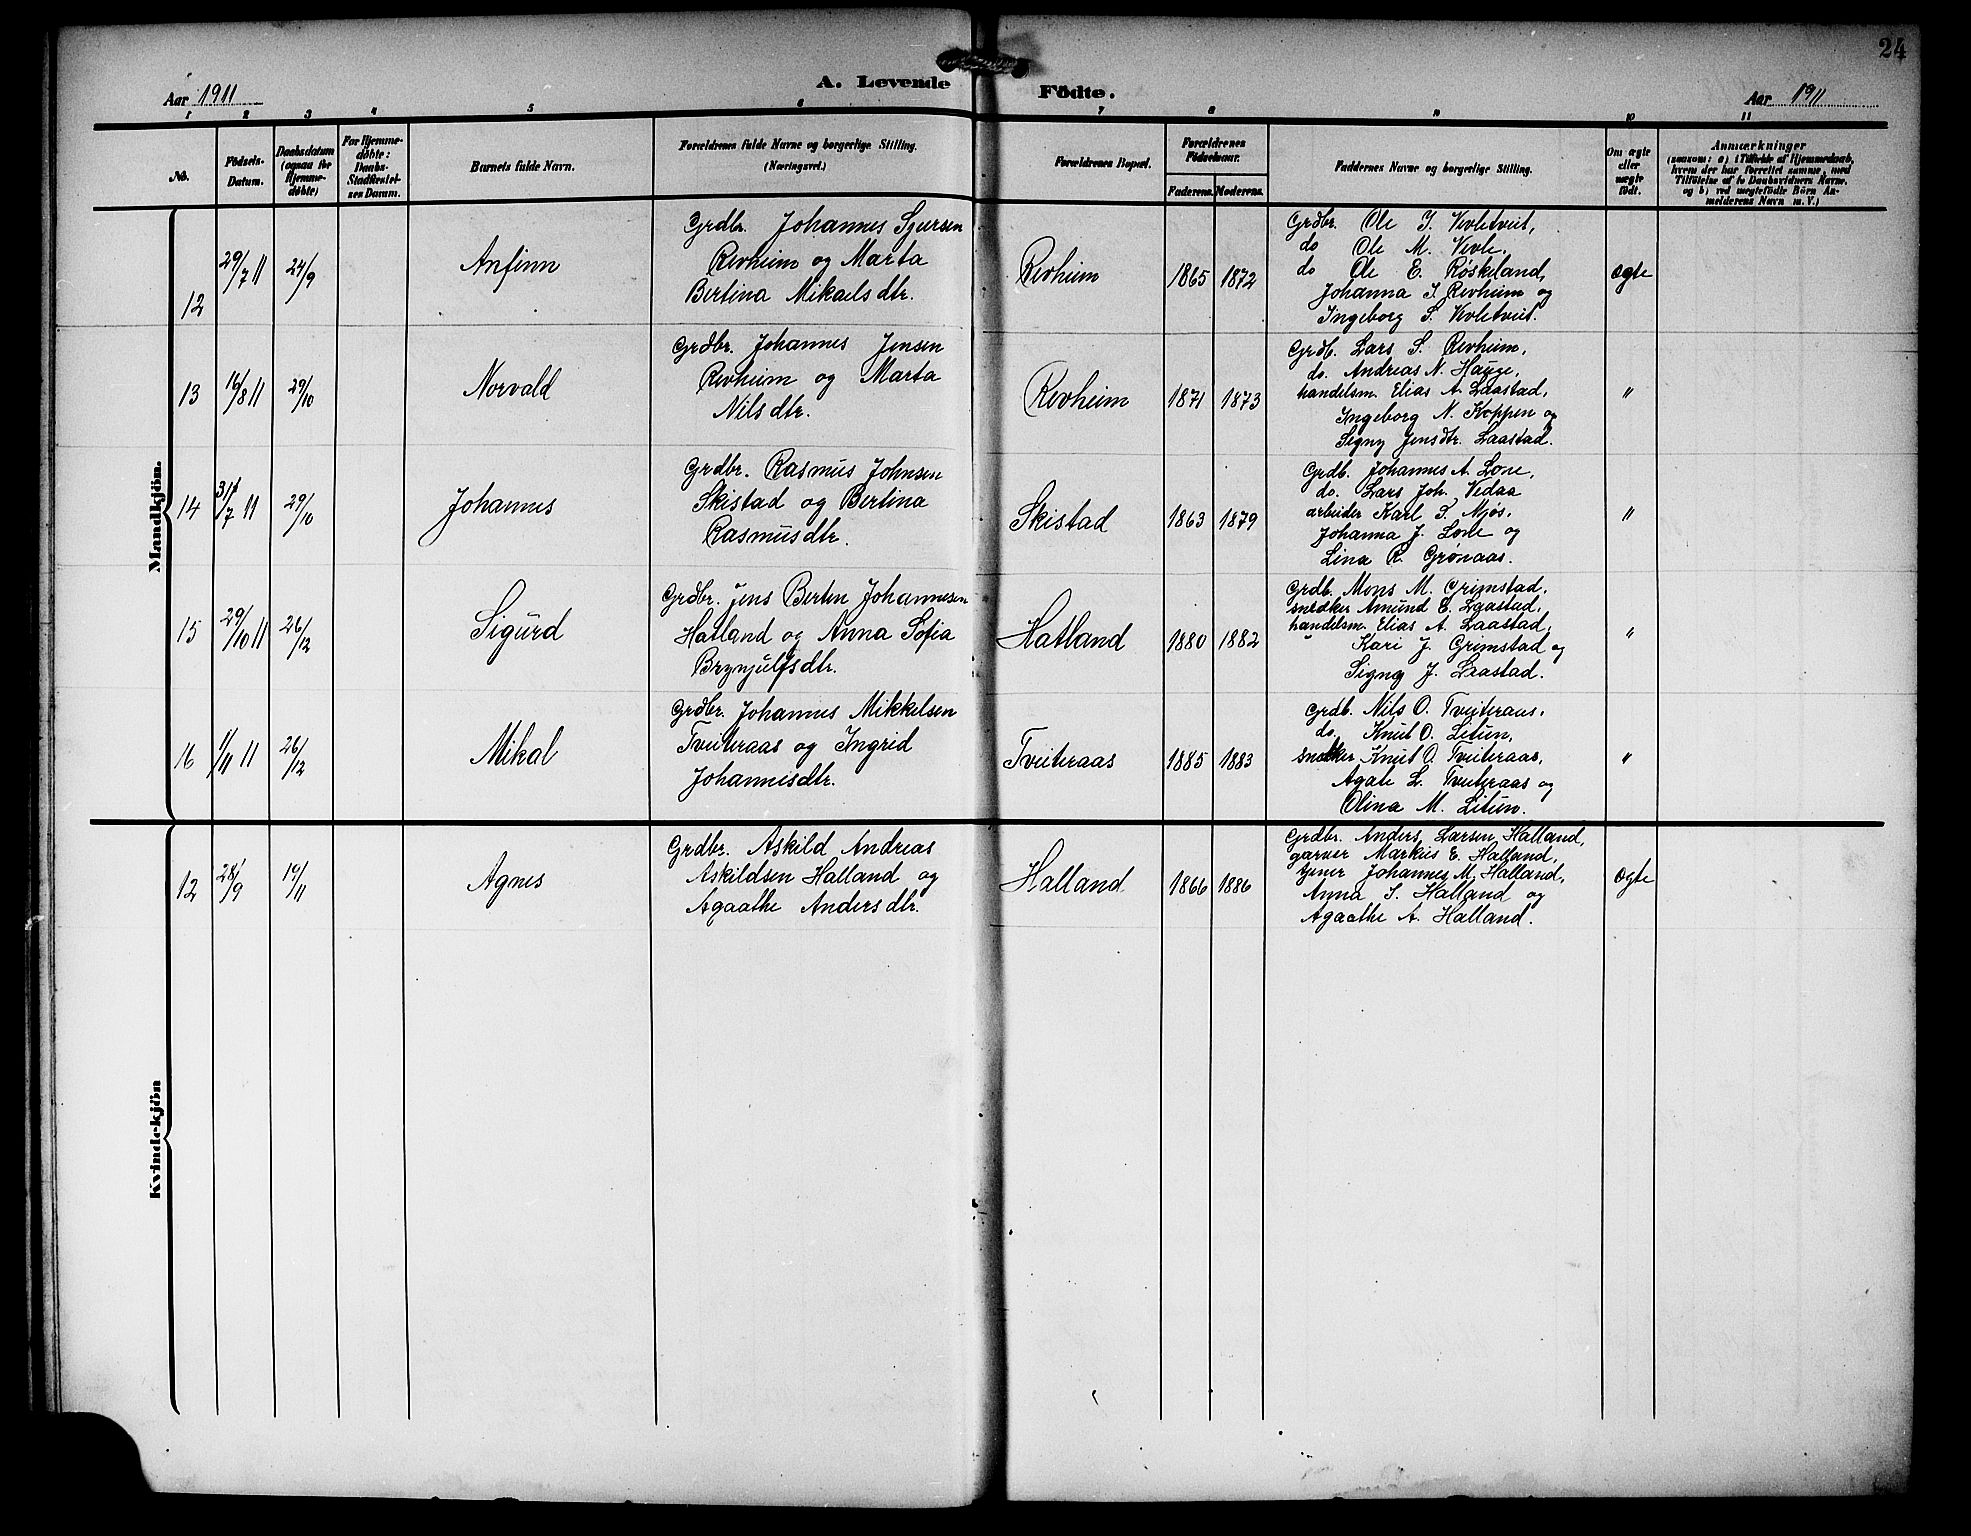 24
Aar 1911
A. Levende Födte.
Aar 1911
1 2 3 4 5 6 7 8 9 10 11
No.
Födsels-
Datum.
Daabsdatum
(ogsaa for
Hjemme-
döbte)
For Hjemme-
döbte:
Daabs-
Stadfæstel-
ses Datum.
Barnets fulde Navn.
Forældrenes fulde Navne og borgerlige Stilling.
(Næringsvei.)
Forældrenes Bopæl.
Forældrenes
Födselsaar.
Faderens. Moderens.
Faddernes Navne og borgerlige Stilling.
Om ægte
eller
uægte
födt.
Anmærkninger
(saasom: a) i Tilfælde af Hjemmedaab,
hvem der har forrettet samme, med
Tilföielse af to Daabsvidners Navne,
og b) ved uægtefödte Börn An-
melderens Navn m. V.)
Mandkjön.
12
29/7 11
24/9
Anfinn
Grdbr. Johannes Sjursen
Revheim og Marta
Bertina Mikaelsdtr.
Revheim
1865 1872
Grdbr. Ole I. Vevletveit,
do Ole M. Vevle,
do Ole E. Røskeland,
Johanna I. Revheim og
Ingeborg S. Vevletveit.
ægte
13
16/8 11
29/10
Norvald
Grdbr. Johannes Jensen
Revheim og Marta
Nilsdtr.
Revheim
1871 1873
Grdb. Lars S. Revheim,
do. Andreas N. Hauge,
handelsm. Elias A. Laastad,
Ingeborg N. Koppen og
Signy Jensdtr. Laastad.
"
14
31/7 11
29/10
Johannes
Grdbr. Rasmus Johnsen
Skistad og Bertina
Rasmusdtr.
Skistad
1863 1879
Grdb. Johannes A. Lone,
do. Lars Joh. Vedaa
arbeider Karl S. Mjøs,
Johanna J. Lone og
Lina R. Grønaas.
"
15
29/10 11
26/12
Sigurd
Grdbr. Jens Berten Johannesen
Hatland og Anna Sofia
Brynjulfsdtr.
Hatland
1880 1882
Grdb. Mons M. Grimstad,
snedker Amund E. Laastad,
handelsm. Elias A. Laastad,
" Kari J. Grimstad og
Signy J. Laastad.
"
16
1/11 11
26/12
Mikal
Grdbr. Johannes Mikkelsen
Tveiteraas og Ingrid
Johannesdtr.
Tveiteraas
1885 1883
Grdb. Nils O. Tveiteraas,
do. Knut O. Litun,
snedker Knut O. Tveiteraas,
Agate L. Tveiteraas og
Olina M. Litun.
"
Kvindekjön
12
28/9
19/11
Agnes
Grdbr. Askild Andreas
Askildsen Halland og
Agaathe Andersdtr.
Halland
1866 1886
Grdbr. Anders Larsen Halland,
garver Markus E. Halland,
tjener Johannes M. Halland,
Anna S. Halland og
Agaathe A. Halland.
ægte